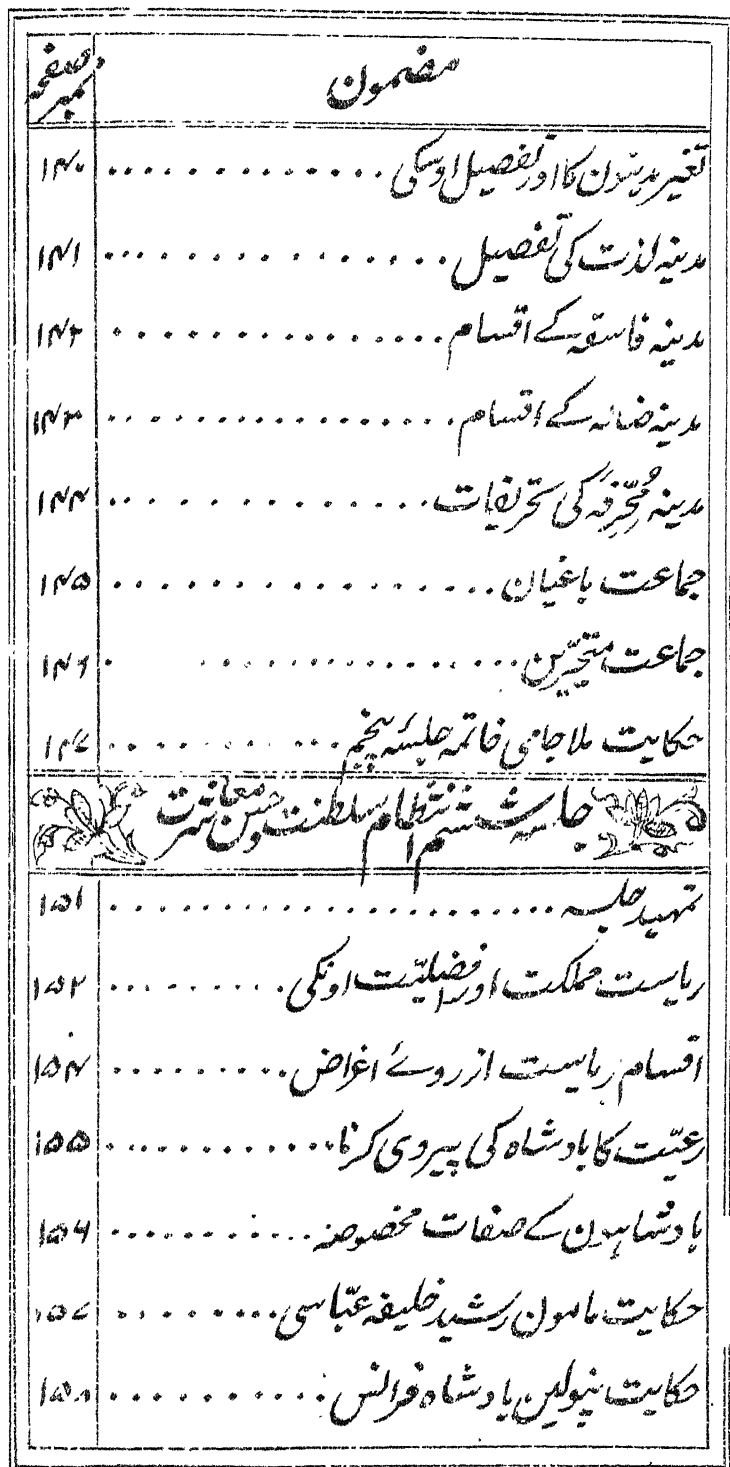 مضمون نمبر صفحہ
تغیر مدینون کا اور تفصیل اوسکی ۱۴۰
مدینہ لذت کی تفصیل ۱۴۱
مدینہ فاسقہ کے اقسام ۱۴۲
مدینہ ضالہ کے اقسام ۱۴۳
مدینہ مُحَرِّفَہ کی تحریفات ۱۴۴
جماعت باغیان ۱۴۵
جماعت متحیّرین ۱۴۶
حکایت ملا جامی خاتمہ جلسۂ پنجم ۱۴۷
جلسہ ششم انتظام سلطنت وحسن معاشرت
تمہید جلسہ ۱۵۱
ریاست مملکت اور افضلیّت اونکی ۱۵۲
اقسام ریاست از روے اغراض ۱۵۴
رعیّت کا بادشاہ کی پیروی کرنا ۱۵۵
بادشاہون کے صفات مخصوصہ ۱۵۶
حکایت مامون رشید خلیفہ عبّاسی ۱۵۷
حکایت نپولین بادشاہ فرانس ۱۵۸